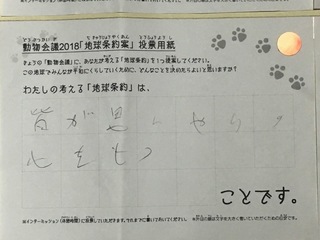 動物会議2018「地球条約案」投票用紙
きょうの「動物会議」に、あなたが考える「地球条約」を1つ提案してください。
この地球でみんなが平和にくらしていくために、どんなことを決めたらよいと思いますか?
わたしの考える「地球条約」は、
皆が思いやりの
心をもつ
ことです。
※インターミッション(休憩時間)に投票していただきます。それまでに書いておいてください。